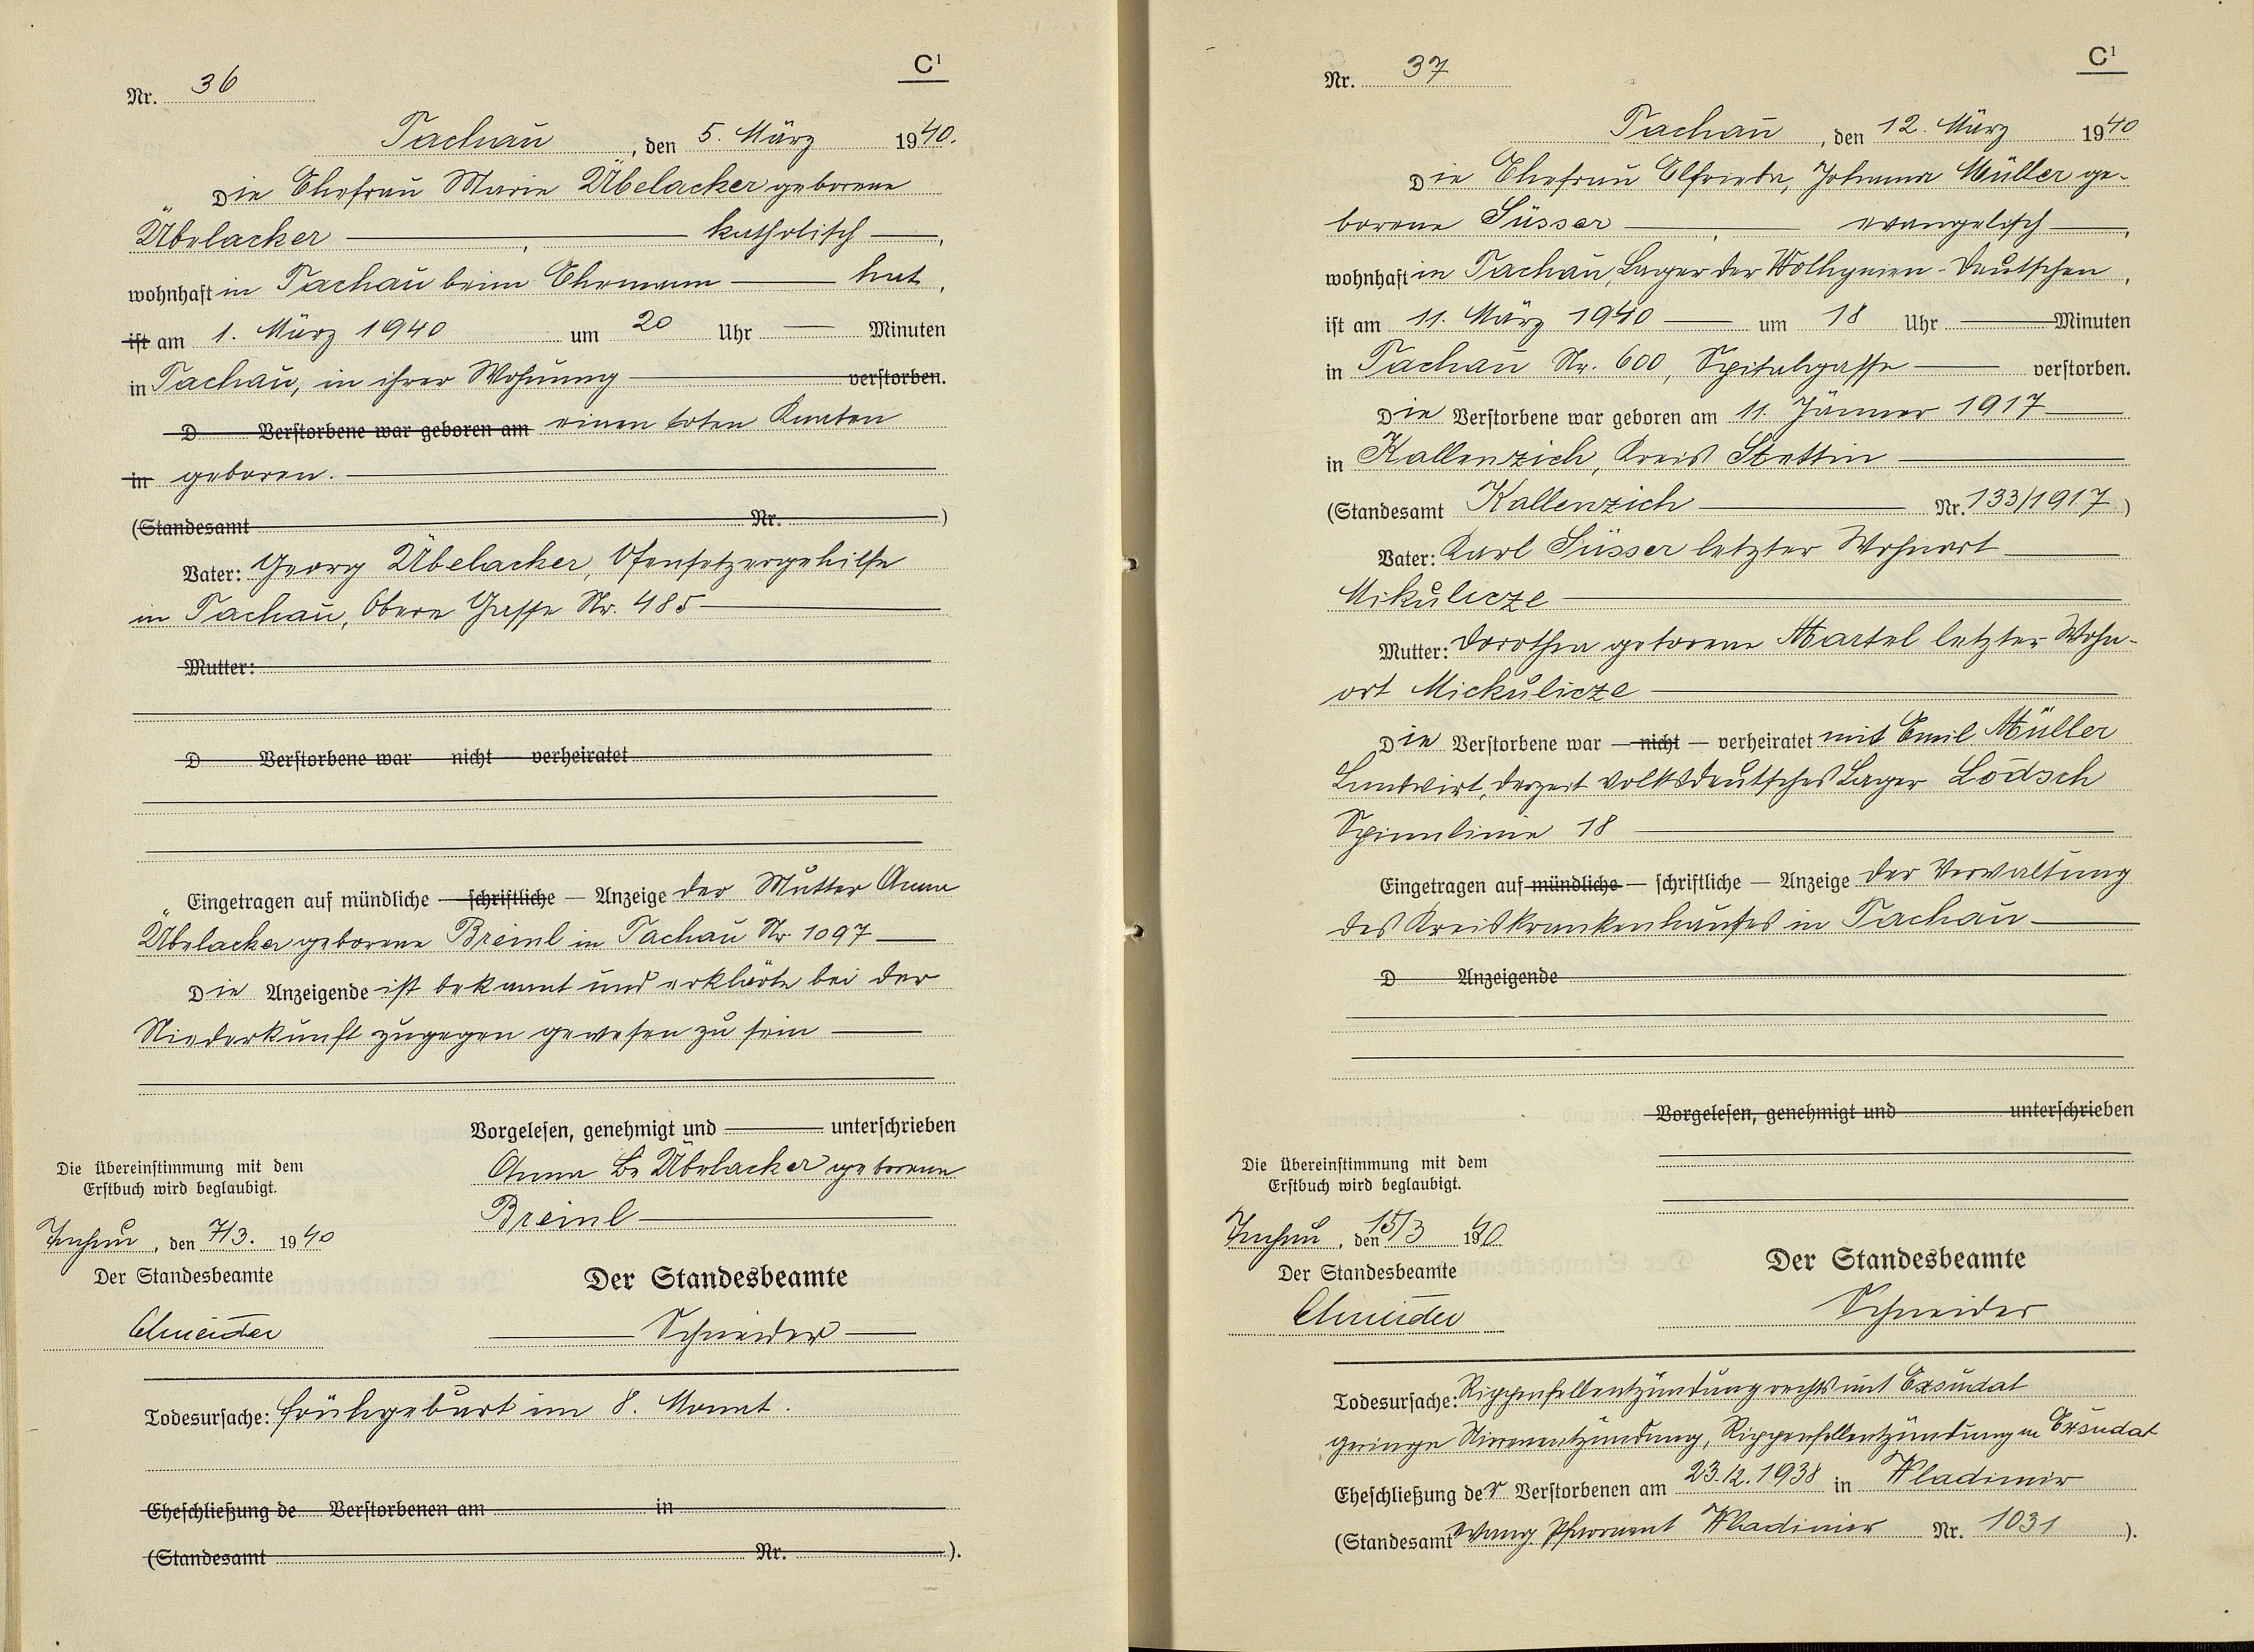 C¹
Nr. 36
Tachau, den 5. März 1940.
Die Ehefrau Marie Übelacker geborene
Übelacker — , — katholisch —,
wohnhaft in Tachau beim Ehemann — hat,
ist am 1. März 1940 um 20 Uhr — Minuten
in Tachau, in ihrer Wohnung — verstorben.
D Verstorbene war geboren am einen toten Knaben
in geboren. —
(Standesamt Nr. )
Vater: Georg Übelacker, Ofensetzergehilfe
in Tachau, Obere Gasse Nr. 485 —
Mutter:
D Verstorbene war — nicht — verheiratet
Eingetragen auf mündliche — schriftliche — Anzeige der Mutter Anna
Übelacker geborene Breinl in Tachau Nr. 1097 —
Die Anzeigende ist bekannt und erklärte bei der
Niederkunft zugegen gewesen zu sein —
Vorgelesen, genehmigt und — unterschrieben
Anna Übelacker geborene
Breinl —
Die Übereinstimmung mit dem
Erstbuch wird beglaubigt.
Tachau, den 7/3. 1940
Der Standesbeamte
Schneider
Der Standesbeamte
— Schneider —
Todesursache: Frühgeburt im 8. Monat.
Eheschließung de Verstorbenen am in
(Standesamt Nr. ).
C¹
Nr. 37
Tachau, den 12. März 1940
Die Ehefrau Elfrieda, Johanna Müller ge-
borene Süsser — , — evangelisch —,
wohnhaft in Tachau, Lager der Wolhynien-Deutschen,
ist am 11. März 1940 — um 18 Uhr — Minuten
in Tachau Nr. 600, Spitalgasse — verstorben.
Die Verstorbene war geboren am 11. Jänner 1917 —
in Kallenzich, Kreis Stettin —
(Standesamt Kallenzich — Nr. 133/1917)
Vater: Karl Süsser letzter Wohnort —
Mikulicze —
Mutter: Dorothea geborene Martel letzter Wohn-
ort Mickulicze —
Die Verstorbene war — nicht — verheiratet mit Emil Müller
Landwirt, derzeit volksdeutsches Lager Lodsch
Spinnlinie 18 —
Eingetragen auf mündliche — schriftliche — Anzeige der Verwaltung
des Kreiskrankenhauses in Tachau —
D Anzeigende
Vorgelesen, genehmigt und unterschrieben
Die Übereinstimmung mit dem
Erstbuch wird beglaubigt.
Tachau, den 15/3 1940
Der Standesbeamte
Schneider
Der Standesbeamte
Schneider
Todesursache: Rippenfellentzündung rechts mit Exsudat
geringe Nierenentzündung, Rippenfellentzündung m Exsudat
Eheschließung der Verstorbenen am 23.12.1938 in Wladimir
(Standesamt evang. Pfarramt Wladimir Nr. 1031 ).